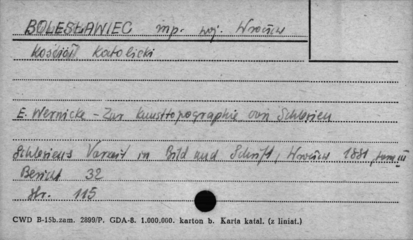 BOLESŁAWIEC mp. woj. Wrocław
Kościół Katolicki
E. Wernicke - Zur Kunsttopographie von Schlesien
Schlesiens Vorzeit in Bild und Schrift, Wrocław 1881, tom III
Bericht 32
Str. 115
CWD B-15b.zam. 2899/P. GDA-8. 1.000.000. karton b. Karta katal. (z liniat.)